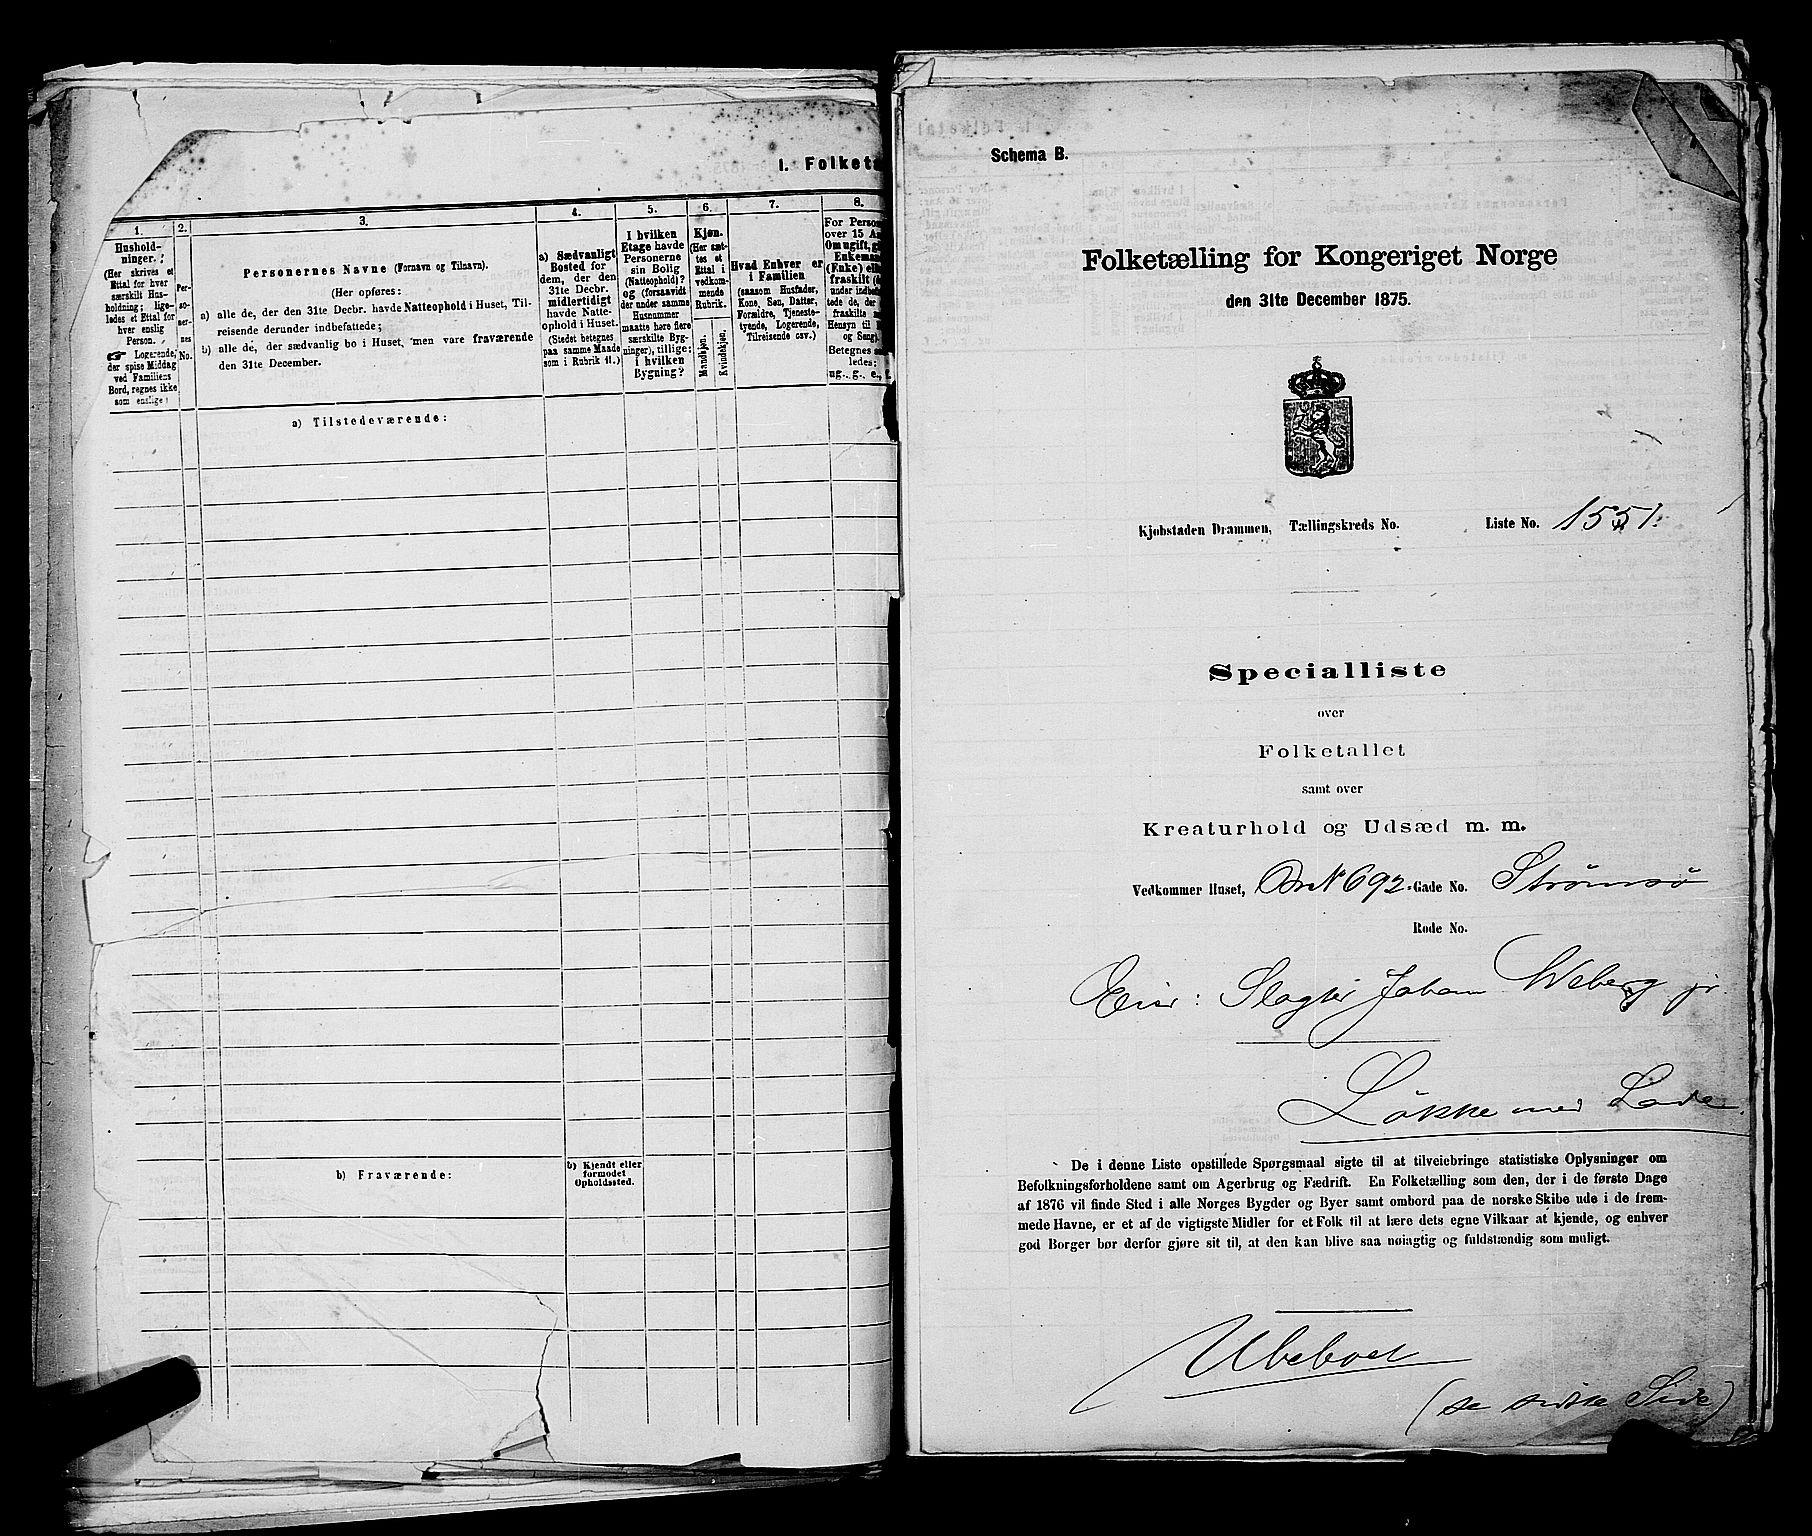 I. Folketa
1.
2.
3.
4.
5.
6.
7.
8.
Hushold-
ninger.
(Her skrives et
Ettal for hver
særskilt Hus-
holdning; lige-
ledes et Ettal for
hver enslig
Person.
☞ Logerende,
der spise Middag
ved Familiens
Bord, regnes ikke
som enslige)
Per-
so-
ner-
nes
No.
Personernes Navne (Fornavn og Tilnavn).
(Her opføres:
a) alle de, der den 31te Decbr. havde Natteophold i Huset, Til-
reisende derunder indbefattede;
b) alle de, der sædvanlig bo i Huset, men vare fraværende
den 31te December.
a) Sædvanligt
Bosted for
dem, der den
31te Decbr.
midlertidigt
havde Natte-
ophold i Huset.
(Stedet betegnes
paa samme Maade
som i Rubrik 11.)
I hvilken
Etage havde
Personerne
sin Bolig
(Natteophold)?
og (forsaavidt
der under samme
Husnummer
maatte høre flere
særskilte Byg-
ninger), tillige:
i hvilken
Bygning?
Kjøn.
(Her sæt-
tes et
Ettal i
vedkom-
mende
Rubrik.
Mandkjøn.
Kvindekjøn.
Hvad Enhver er
i Familien
(saasom Husfader,
Kone, Søn, Datter,
Forældre, Tjeneste-
tyende, Logerende,
Tilreisende osv.)
For Person
over 15 Aa
Om ugift, gi
Enkeman
(Enke) elle
fraskilt
under indbefat
tede de, der
fraskilte
Hensyn til
og Seng).
Betegnes
ledes:
ug., g., e., f.
a) Tilstedeværende:
b) Fraværende:
b) Kjendt eller
formodet
Opholdssted.
Schema B.
Folketælling for Kongeriget Norge
den 31te December 1875.
Kjøbstaden Drammen, Tællingskreds No. Liste No. 1551.
Specialliste
over
Folketallet
samt over
Kreaturhold og Udsæd m. m.
Vedkommer Huset, Br.N 692. Gade No. Strømsø
Rode No.
Eier: Slagter Johan Weberg jr.
Løkke med Lade.
De i denne Liste opstillede Spørgsmaal sigte til at tilveiebringe statistiske Oplysninger om
Befolkningsforholdene samt om Agerbrug og Fædrift. En Folketælling som den, der i de første Dage
af 1876 vil finde Sted i alle Norges Bygder og Byer samt ombord paa de norske Skibe ude i de frem-
mede Havne, er et af de vigtigste Midler for et Folk til at lære dets egne Vilkaar at kjende, og enhver
god Borger bør derfor gjøre sit til, at den kan blive saa nøiagtig og fuldstændig som muligt.
Ubeboet
(se sidste Side)